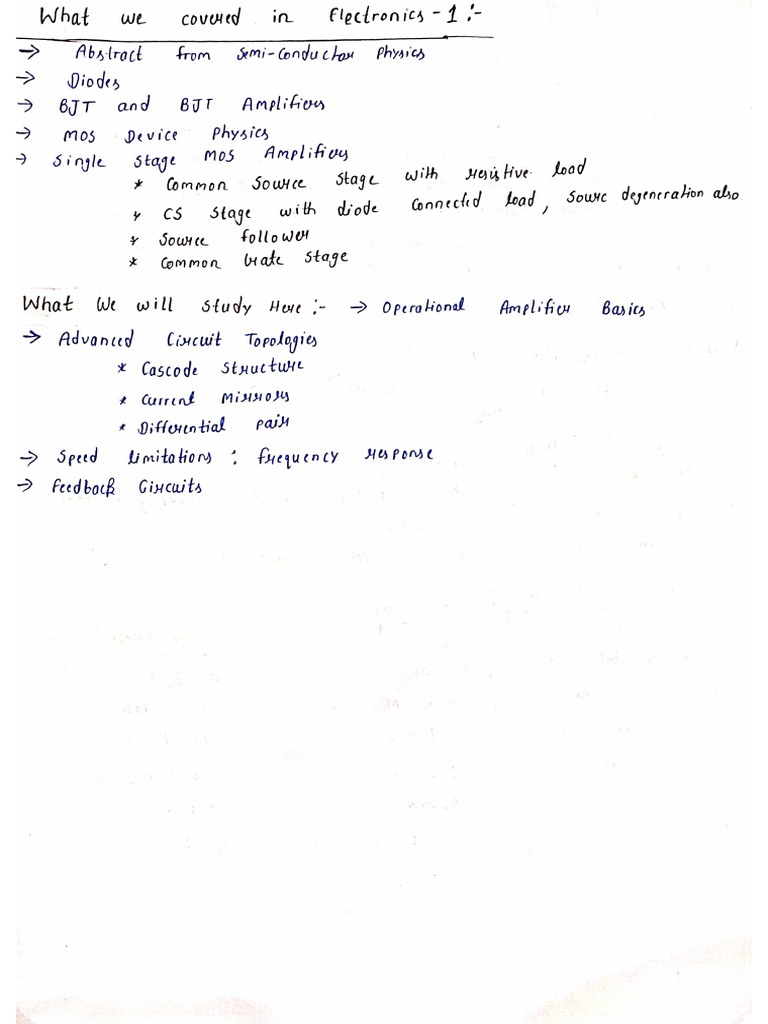 What we covered in Electronics-1:-
→ Abstract from Semi-Conductor Physics
→ Diodes
→ BJT and BJT Amplifiers
→ MOS Device Physics
→ Single Stage MOS Amplifiers
* Common Source Stage with resistive load
* CS Stage with diode connected load, Sourc degeneration also
* Source follower
* Common Gate Stage
What We will Study Here:- → Operational Amplifier Basics
→ Advanced Circuit Topologies
* Cascode Structure
* Current Mirrors
* Differential pair
→ Speed limitations : frequency response
→ Feedback Circuits